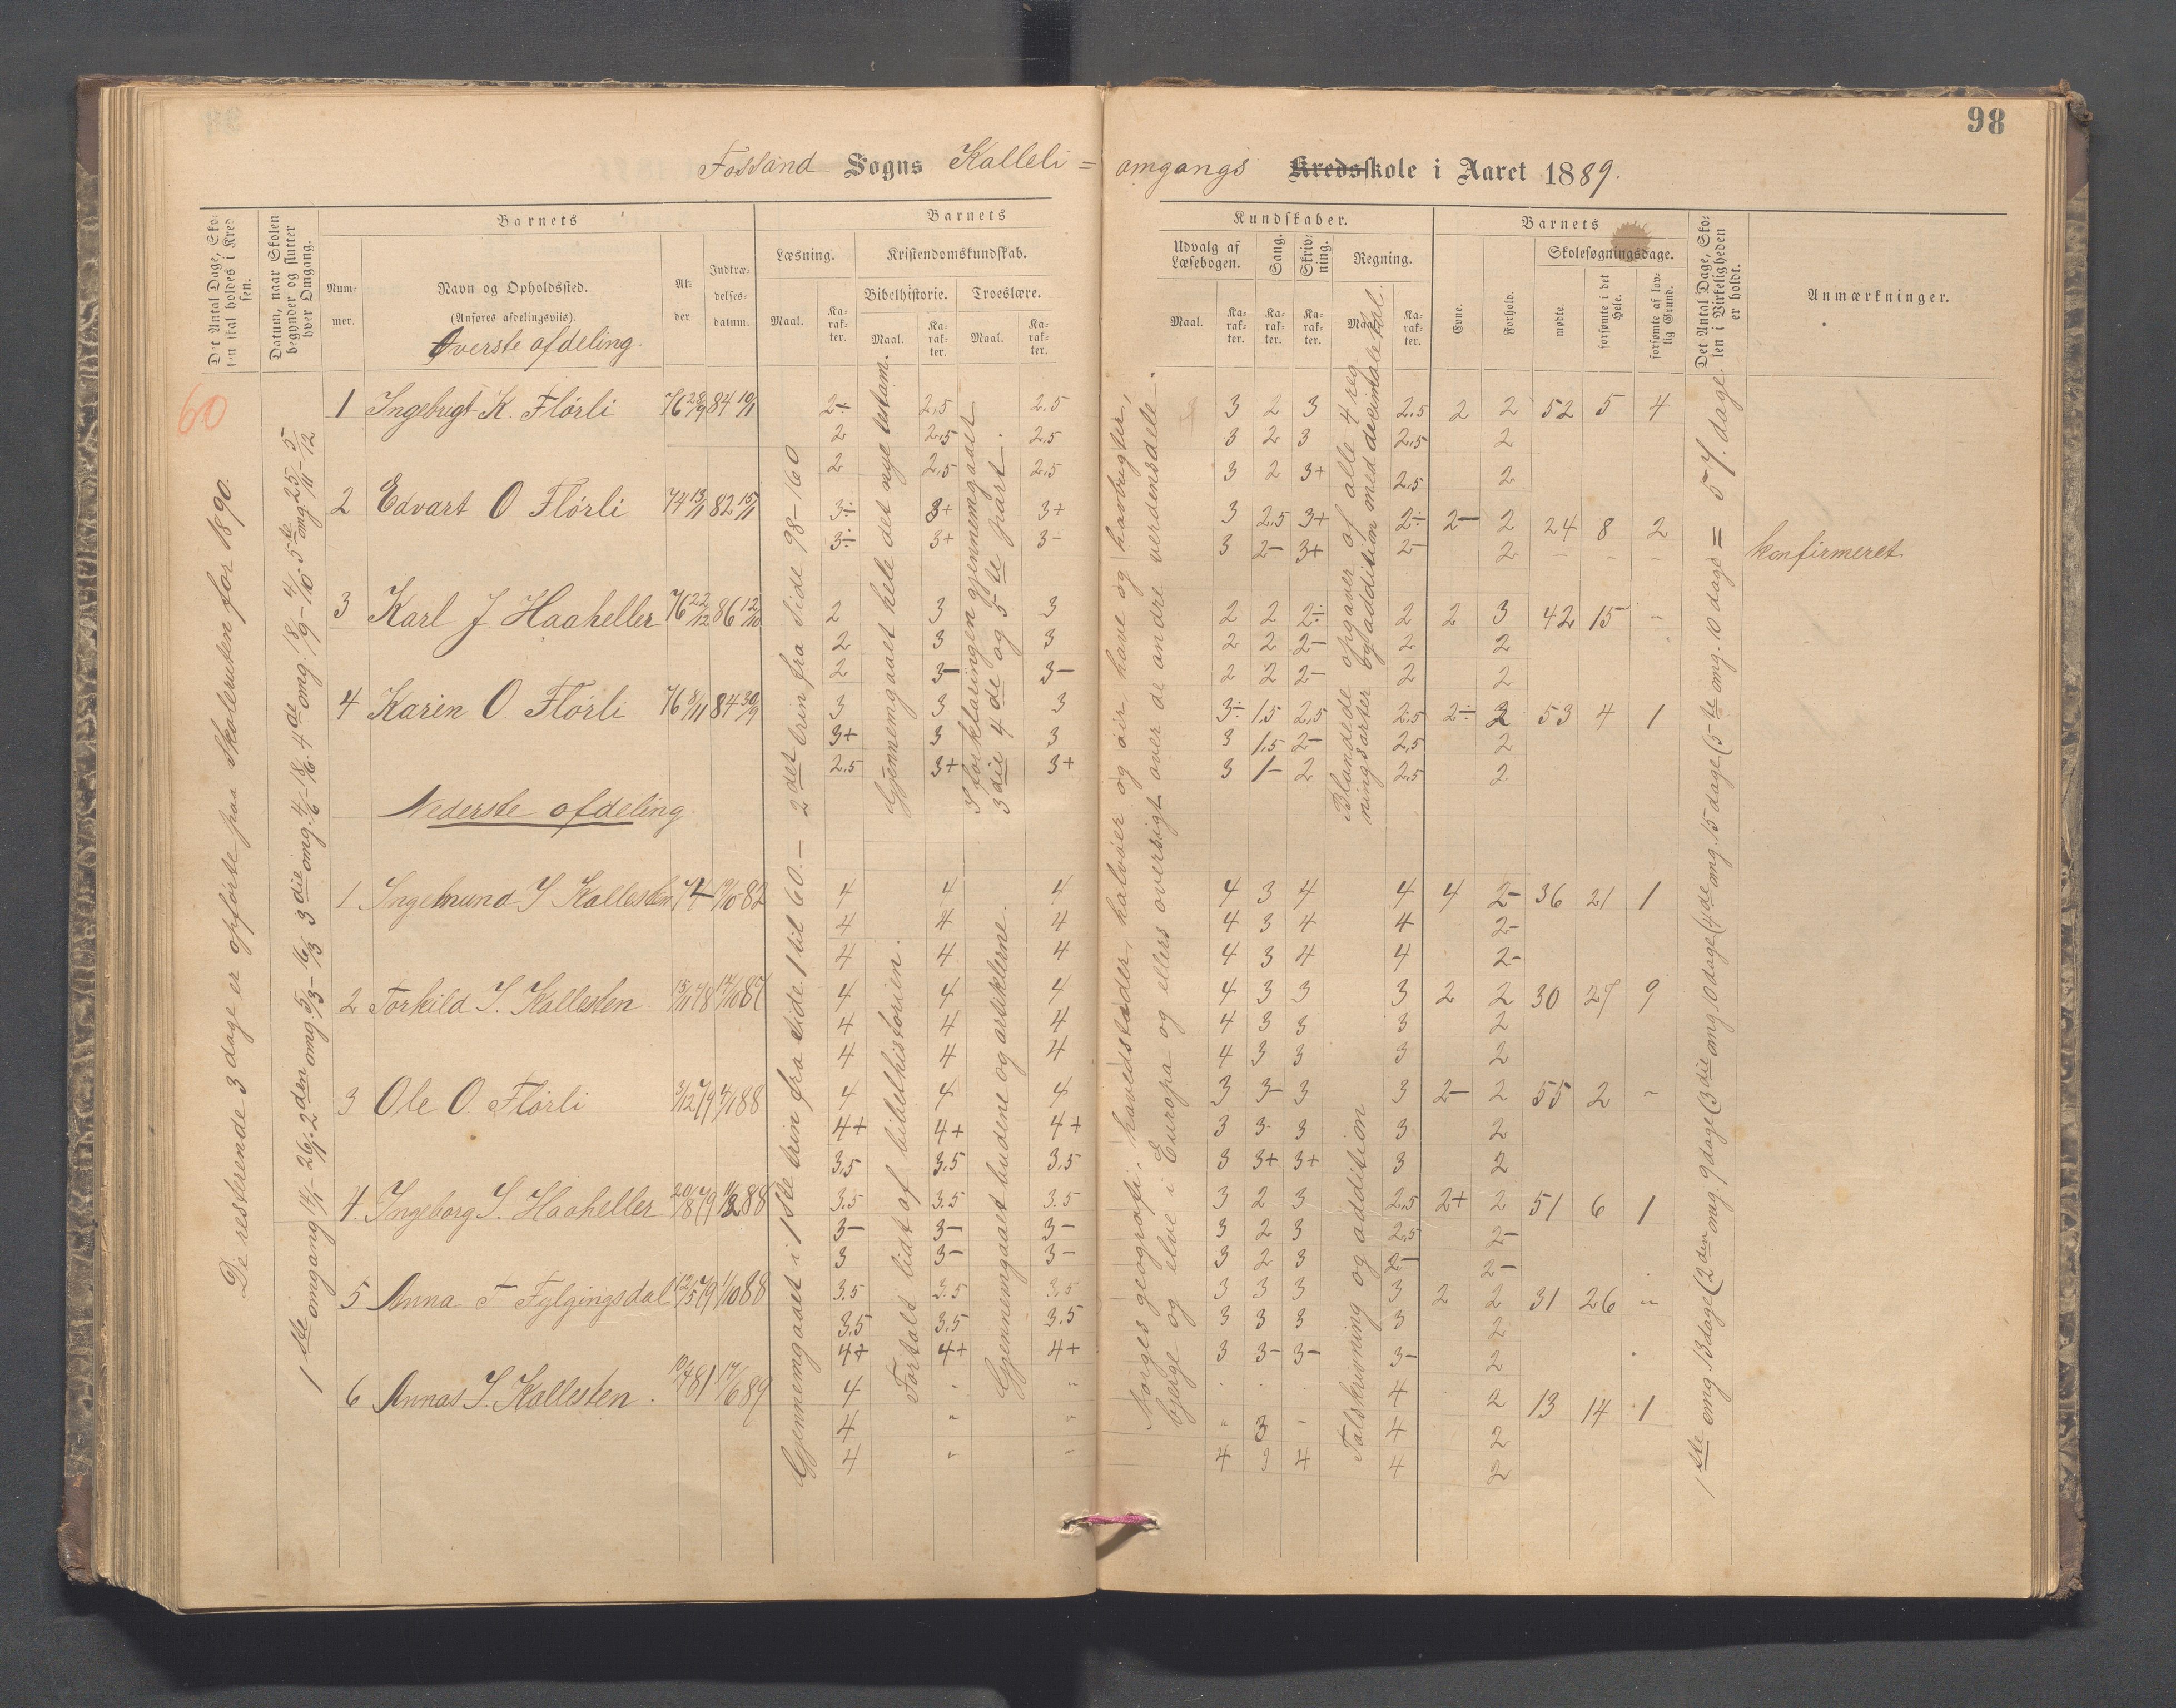 98
Fossand Sogns Kalleli = omgangs Kredsskole i Aaret 1889.
Det Antal Dage, Sko-
len skal holdes i Kred
sen.
Datum, naar Skolen
begynder og slutter
hver Omgang.
Barnets
Num-
mer.
Navn og Opholdssted.
(Anføres afdelingsviis).
Øverste afdeling.
Al-
der.
Indtræ-
delses-
datum.
Barnets
Læsning.
Maal.
Ka-
rak-
ter.
Kristendomskundskab.
Bibelhistorie.
Maal.
Ka-
rak-
ter.
Troeslære.
Maal.
Ka-
rak-
ter.
Kundskaber.
Udvalg af
Læsebogen.
Maal.
Ka-
rak-
ter.
Sang.
Ka-
rak-
ter.
Skriv-
ning.
Ka-
rak-
ter.
Regning.
Maal.
Ka-
rak-
ter.
Barnets
Evne.
Forhold.
Skolesøgningsdage.
mødte.
forsømte i det
Hele.
forsømte af lov-
lig Grund.
Det Antal Dage, Sko-
len i Virkeligheden
er holdt.
Anmærkninger.
60
De resterende 3 dage er opførte paa skoleruten for 1890.
1ste omgang 14/1 - 26/1. 2den omg. 5/3 - 16/3 3die omg. 4/6 - 18/6. 4de omg. 18/9 - 4/10. 5te omg. 25/11 - 5/12
Gjennemgaaet i 1ste trin fra side 1 til 60. — 2det trin fra side 98 - 160
Gjennemgaaet hele det nye testam.
I forklaringen gjennemgaaet
3die 4de og 5te part.
Fortalt lidt af bibelhistorien.
Gjennemgaaet budene og artiklerne.
Norges geografi, hovedstæder, halvøer og øir have og havbugter,
bjerge og elve i Europa og ellers oversigt over de andre verdensdele.
Blandede opgaver af alle 4 reg
ningsarter og addition med decimaletal.
Talskrivning og addition
1ste omg. 13 dage (2den omg. 9 dage (3die omg 10 dage (4de omg. 15 dage (5te omg. 10 dage = 57. dage.
1 Ingebrigt K. Flørli 76 28/9 84 10/11 2- 2.5 2.5 3 2 3 2.5 2 2 52 5 4
2 2.5 2.5 3 2 3 2.5 2
2 2.5 2.5 3 2 3+ 2.5 2
2 Edvart O Flørli 74 13/11 82 15/11 3÷ 3+ 3+ 3 2.5 3+ 2÷ 2- 2 24 8 2
3÷ 3+ 3- 3 2- 3+ 2- 2 - - - konfirmeret
3 Karl J Haaheller 76 22/12 86 12/10 2 3 3 2 2 2÷ 2 2 3 42 15 "
2 3 3 2 2 2- 2 2
2 3- 3- 2 2 2- 2 2
4 Karen O. Flørli 76 8/11 84 30/9 3 3 3 3÷ 1.5 2.5 2.5 2÷ 2 53 4 1
3+ 3 3 3 1.5 2- 2.5 2
2.5 3+ 3+ 3 1- 2 2.5 2
Nederste afdeling.
1 Ingemund S Kallesten 74 19/10 82 4 4 4 4 3 4 4 4 2- 36 21 1
4 4 4 4 3 4 4 2-
4 4 4 4 3 4 4 2-
2 Torkild S. Kallesten 15/11 78 14/10 87 4 4 4 4 3 3 3 2 2 30 27 9
4 4 4 4 3 3 3 2
4 4 4 4 3 3 3 2
3 Ole O Flørli 3/12 79 4/1 88 4 4 4 3 3- 3 3 2- 2 55 2 "
4+ 4+ 4+ 3 3- 3 3 2
3.5 3.5 3.5 3 3+ 3+ 3 2
4. Ingeborg S. Haaheller 20/8 79 88 3.5 3.5 3.5 3 2 3 2.5 2+ 2 51 6 1
3- 3- 3- 3 2 3 2.5 2-
3 3- 3- 3 2 3 2- 2-
5 Anna T Fylgingsdal 12/5 79 1/10 88 3.5 3.5 3.5 3 3 3 3 2 2 31 26 "
3.5 3.5 3.5 3 3 3 3 2
4+ 4+ 4+ 3 3- 3- 3- 2
6 Annas S. Kallesten. 81 17/6 89 4 " " 4 2 13 14 1
4 " " " 3 - 4 2
4 " " 4 3 4 4 2